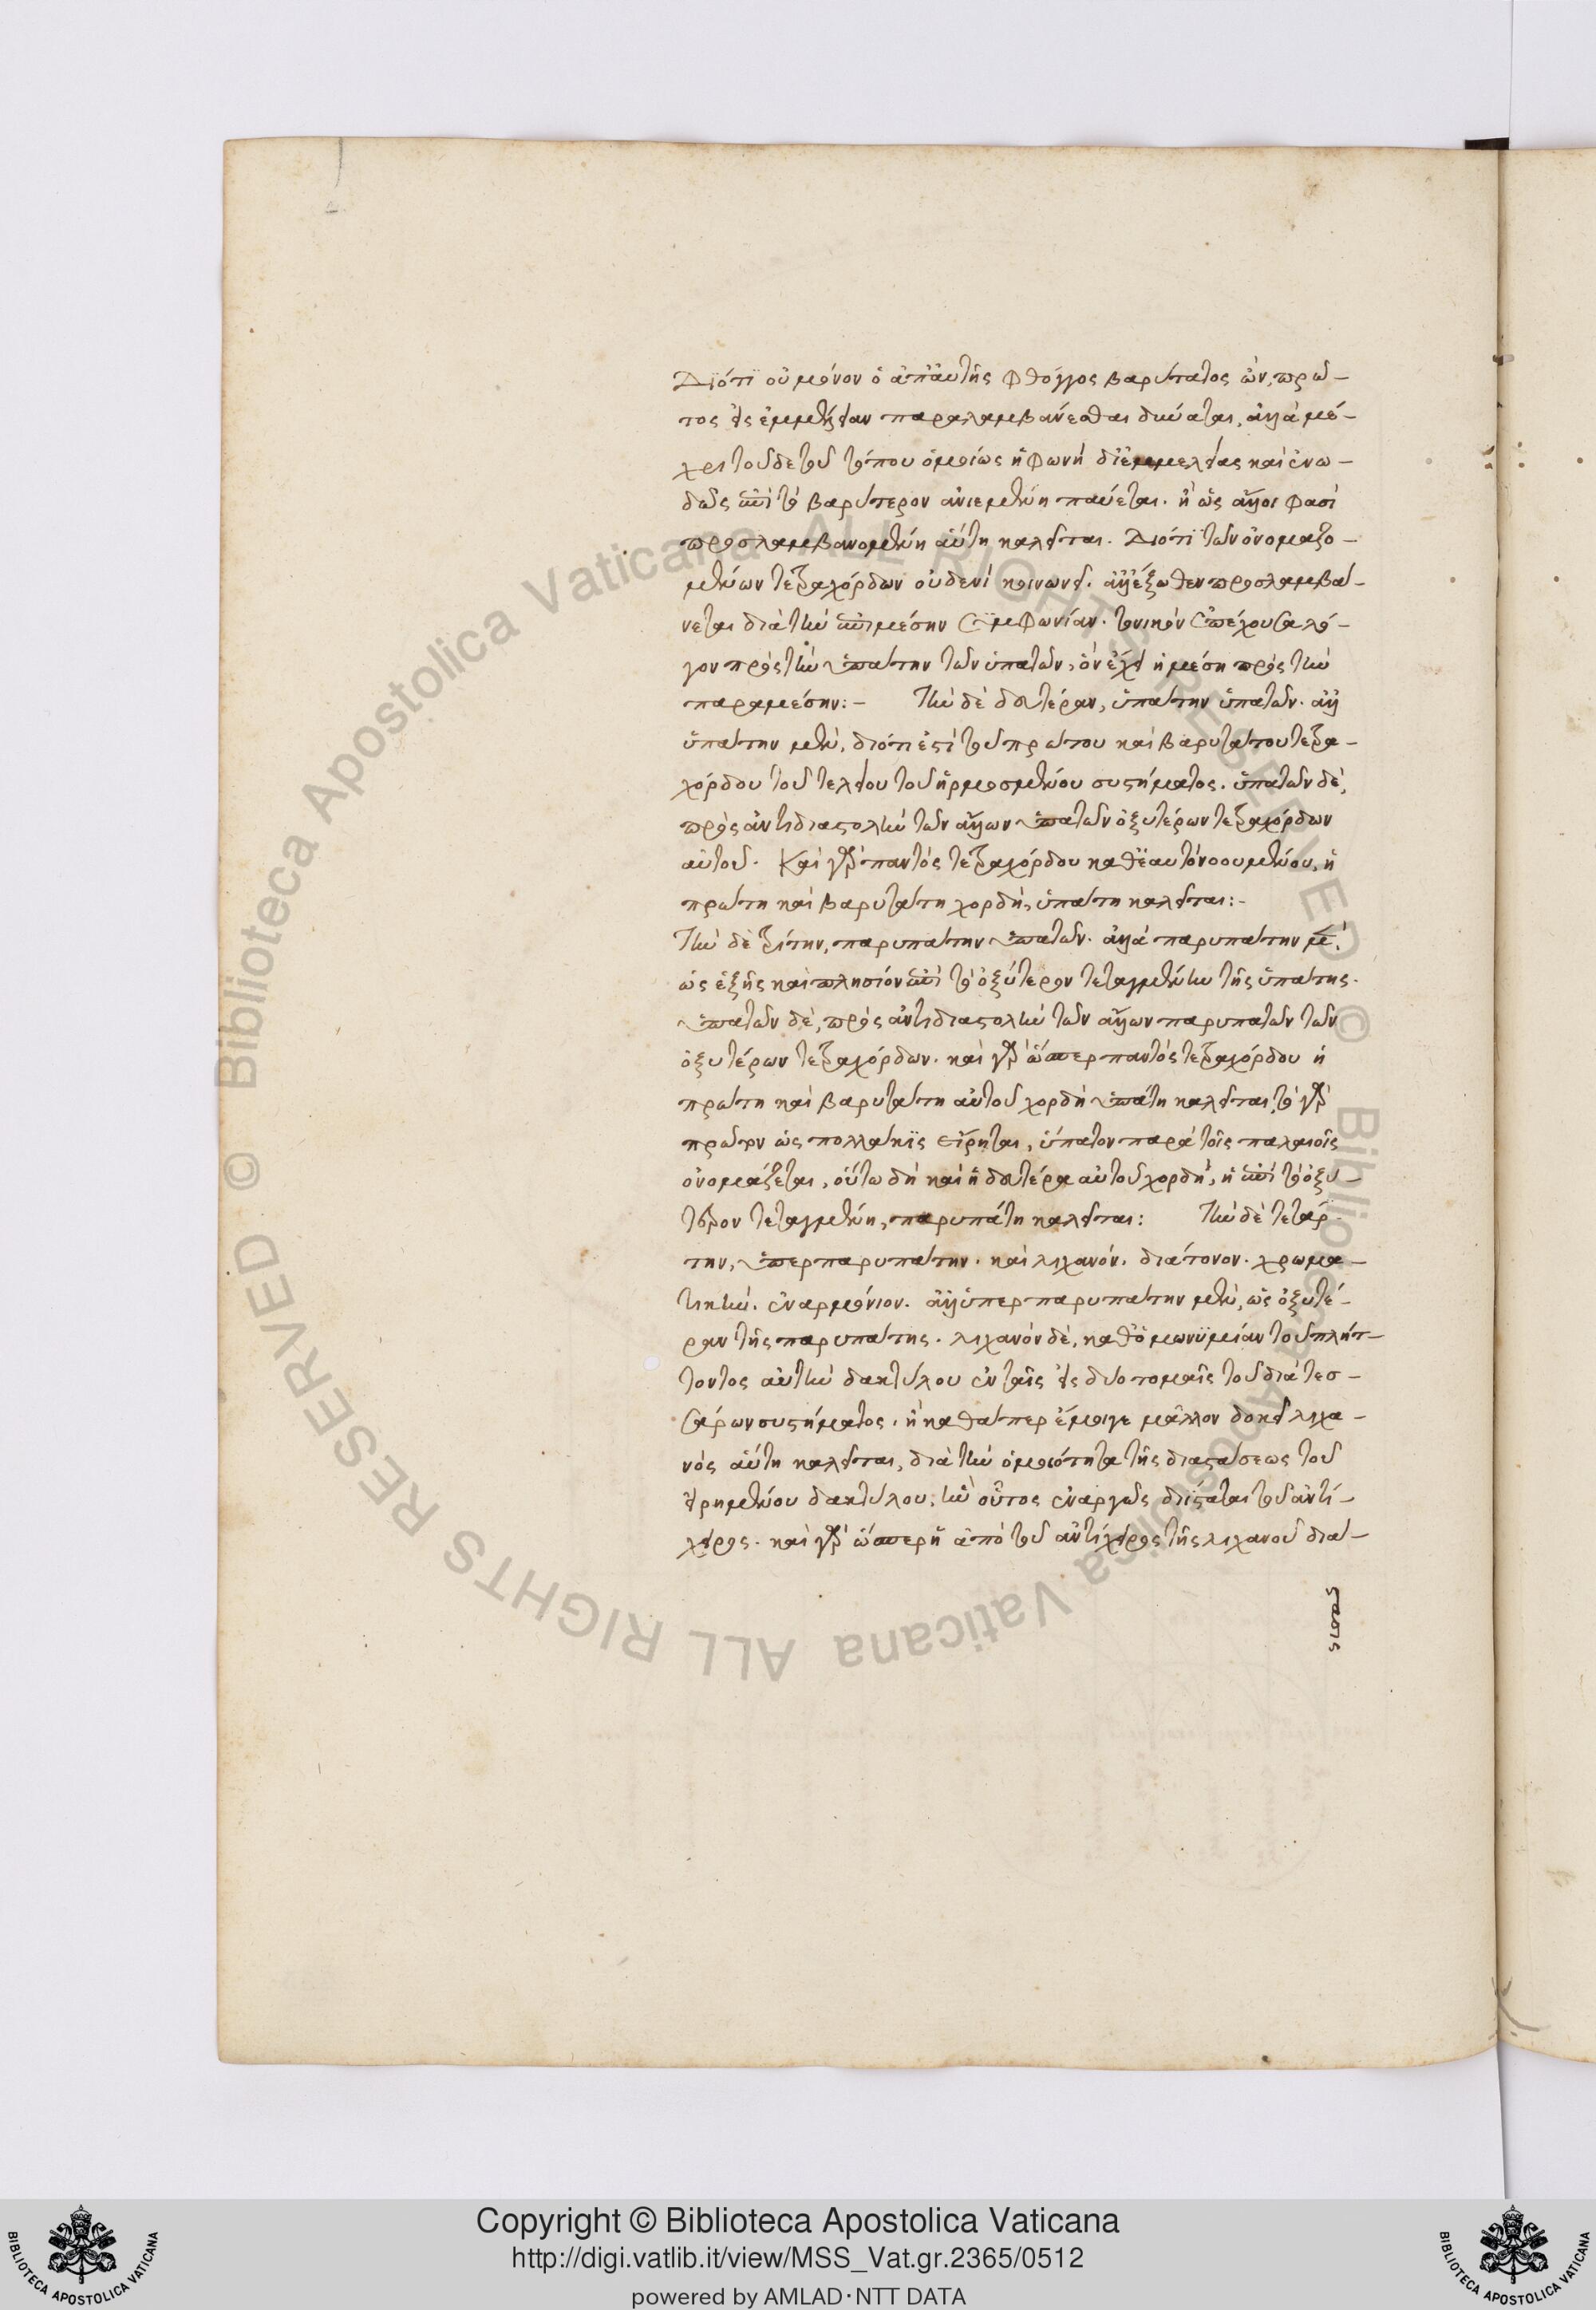 Διότι οὐ μόνον ὁ ἀπ' αὐτῆς φθόγγος βαρύτατος ὤν, πρῶ-
τος εἰς ἐμμέλειαν παραλαμβάνεσθαι δύναται, ἀλλὰ μέ-
χρι τοῦδε τοῦ τόπου ὁμοίως ἡ φωνὴ δι' ἐμμελείας καὶ ἐνω-
δῶς ἐπὶ τὸ βαρύτερον ἀνιεμένη παύεται. ἢ ὥς ἄλλοι φασὶ
προσλαμβανομένη αὕτη καλεῖται. Διότι τῶν ὀνομαζο-
μένων τετραχόρδων οὐδενὶ κοινωνεῖ. ἀλλ' ἔξωθεν προσλαμβά-
νεται διὰ τὴν ἐπὶ μέσην συμφωνίαν. τονικὸν ἐπέχουσα λό-
γον πρὸς τὴν ὑπάτην τῶν ὑπατῶν, ὃν ἔχει ἡ μέση πρὸς τὴν
παραμέσην:- Τὴν δὲ δευτέραν, ὑπάτην ὑπατῶν. ἀλλ'
ὑπάτην μὲν, διότι ἐστὶ τοῦ πρώτου καὶ βαρυτάτου τετρα-
χόρδου τοῦ τελείου τοῦ ἡρμοσμένου συστήματος. ὑπατῶν δὲ,
πρὸς ἀντιδιαστολὴν τῶν ἄλλων ὑπατῶν ὀξυτέρων τετραχόρδων
αὐτοῦ. Καὶ γὰρ παντὸς τετραχόρδου καθ' ἑαυτὸ νοουμένου, ἡ
πρώτη καὶ βαρυτάτη χορδὴ, ὑπάτη καλεῖται:-
Τὴν δὲ τρίτην, παρυπάτην ὑπατῶν. ἀλλὰ παρυπάτην μὲν,
ὡς ἑξῆς καὶ πλησίον ἐπὶ τὸ ὀξύτερον τεταγμένην τῆς ὑπάτης.
ὑπατῶν δὲ, πρὸς ἀντιδιαστολὴν τῶν ἄλλων παρυπατῶν τῶν
ὀξυτέρων τετραχόρδων. καὶ γὰρ ὥσπερ παντὸς τετραχόρδου ἡ
πρώτη καὶ βαρυτάτη αὐτοῦ χορδὴ ὑπάτη καλεῖται, τὸ γὰρ
πρῶτον ὡς πολλάκις εἴρηται, ὕπατον παρὰ τοῖς παλαιοῖς
ὀνομάζεται, οὕτω δὴ καὶ ἡ δευτέρα αὐτοῦ χορδὴ, ἡ ἐπὶ τὸ ὀξύ-
τερον τεταγμένη, παρυπάτη καλεῖται: Τὴν δὲ τετάρ-
την, ὑπερπαρυπάτην. καὶ λιχανόν. διάτονον. χρωμα-
τικὴν. ἐναρμόνιον. ἀλλ' ὑπερπαρυπάτην μὲν, ὡς ὀξυτέ-
ραν τῆς παρυπάτης. λιχανὸν δὲ, καθ' ὁμωνυμίαν τοῦ πλήτ-
τοντος αὐτὴν δακτύλου ἐν ταῖς εἰς δύο τομαῖς τοῦ διὰ τεσ-
σάρων συστήματος. ἢ καθάπερ ἔμοιγε μᾶλλον δοκεῖ λιχα-
νὸς αὕτη καλεῖται, διὰ τὴν ὁμοιότητα τῆς διαστάσεως τοῦ
εἰρημένου δακτύλου, ἣν οὗτος ἐναργῶς διΐσταται τοῦ ἀντί-
χειρος. καὶ γὰρ ὥσπερ ἡ ἀπὸ τοῦ ἀντίχειρος τῆς λιχανοῦ διά-
στασις
Copyright © Biblioteca Apostolica Vaticana
http://digi.vatlib.it/view/MSS_Vat.gr.2365/0512
powered by AMLAD·NTT DATA